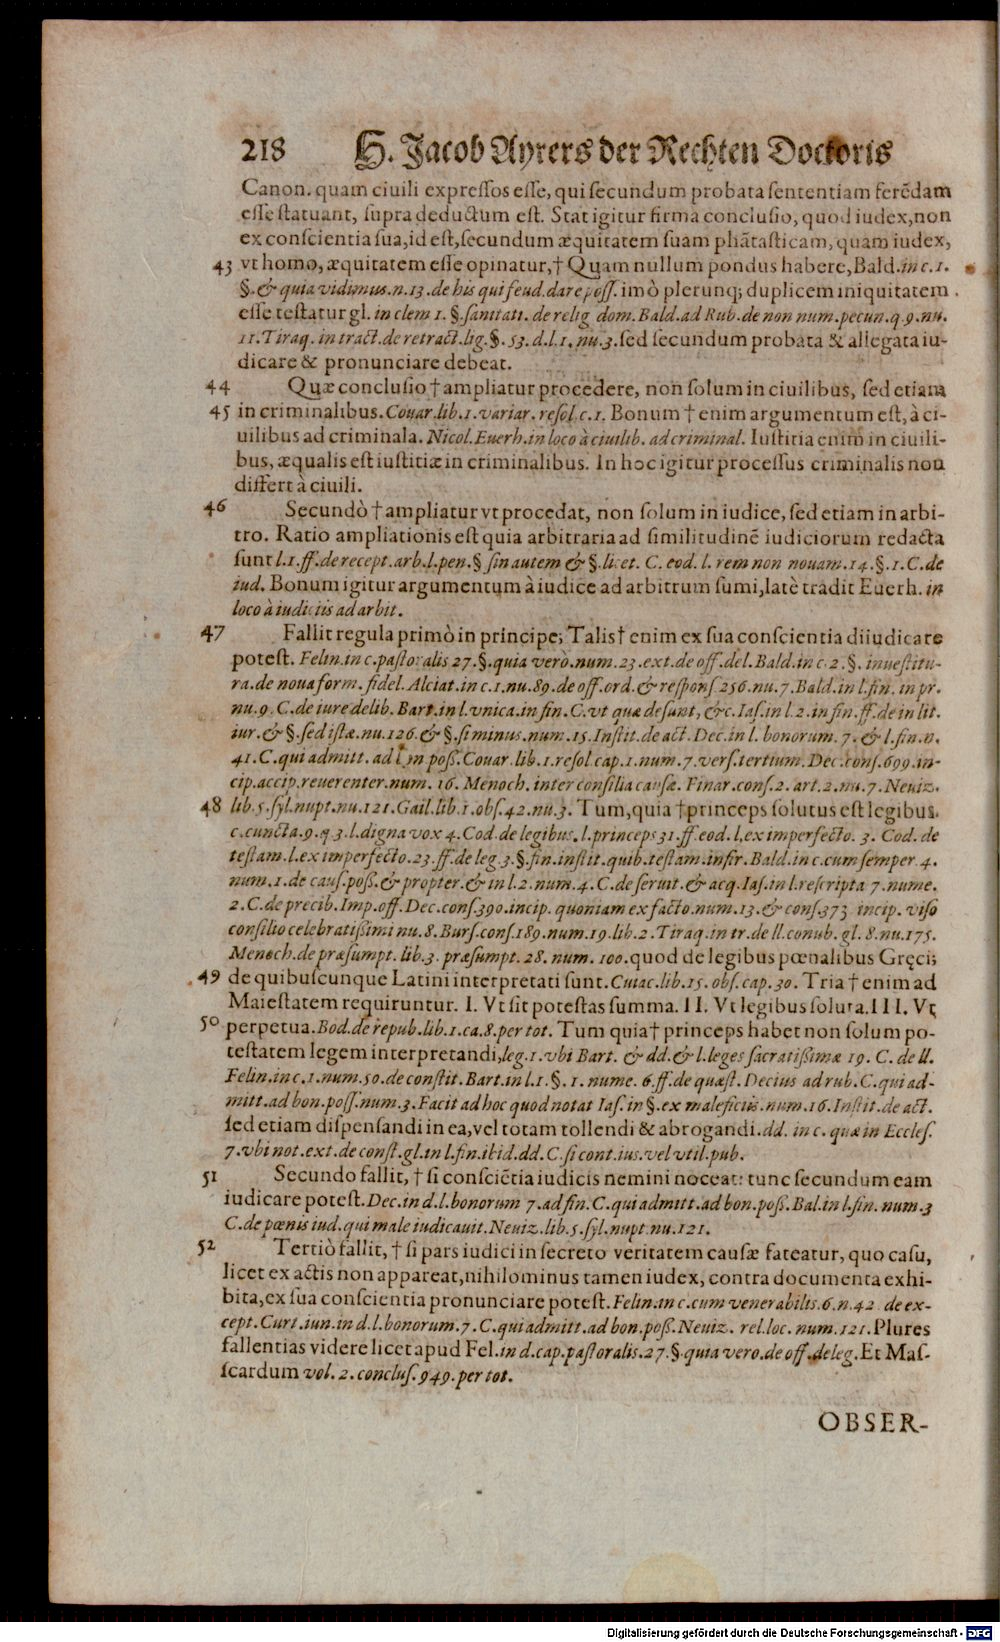 218 H. Jacob Ayrers der Rechten Doctoris
Canon. quam ciuili expressos esse, qui secundum probata sententiam ferẽdam
esse statuant, supra deductum est. Stat igitur firma conclusio, quod iudex, non
ex conscientia sua, id est, secundum æquitatem suam phãtasticam, quam iudex,
43 vt homo, æquitatem esse opinatur, † Quam nullum pondus habere, Bald. in c. 1.
§. & quia vidimus. n. 13. de his qui feud. dare poss. imò plerunq; duplicem iniquitatem
esse testatur gl. in clem 1. §. sanitati. de relig dom. Bald. ad Rub. de non num. pecun. q. 9. nu.
11. Tiraq. in tract. de retract. lig. §. 53. d. l. 1. nu. 3. sed secundum probata & allegata iu-
dicare & pronunciare debeat.
44 Quæ conclusio † ampliatur procedere, non solum in ciuilibus, sed etiam
45 in criminalibus. Couar. lib. 1. variar. resol. c. 1. Bonum † enim argumentum est, à ci-
uilibus ad criminala. Nicol. Euerh. in loco à ciuilib. ad criminal. Iustitia enim in ciuili-
bus, æqualis est iustitiæ in criminalibus. In hoc igitur processus criminalis non
differt à ciuili.
46 Secundò † ampliatur vt procedat, non solum in iudice, sed etiam in arbi-
tro. Ratio ampliationis est quia arbitraria ad similitudinẽ iudiciorum redacta
sunt l. 1. ff. de recept. arb. l. pen. § sin autem & §. licet. C. eod. l. rem non nouam. 14. §. 1. C. de
iud. Bonum igitur argumentum à iudice ad arbitrum sumi, latè tradit Euerh. in
loco à iudiciis ad arbit.
47 Fallit regula primò in principe; Talis † enim ex sua conscientia diiudicare
potest. Felin. in c. pastoralis 27. §. quia verò. num. 23. ext. de off. del. Bald. in c. 2. §. inuestitu-
ra. de noua form. fidel. Alciat. in c. 1. nu. 89. de off. ord. & respons. 256. nu. 7. Bald. in l. fin. in pr.
nu. 9. C. de iure delib. Bart. in l. vnica. in fin. C. vt quæ desunt, &c. Ias. in l. 2. in fin. ff. de in lit.
iur. & §. sed istæ. nu. 126. & §. si minus. num. 15. Instit. de act. Dec. in l. bonorum. 7. & l. fin. n.
41. C. qui admitt. ad bon poß. Couar. lib. 1. resol. cap. 1. num. 7. vers. tertium. Dec. cons. 699. in-
cip. accip. reuerenter. num. 16. Menoch. inter consilia causæ. Finar. cons. 2. art. 2. nu. 7. Neuiz.
48 lib. 5. syl. nupt. nu. 121. Gail. lib. 1. obs. 42. nu. 3. Tum, quia † princeps solutus est legibus.
c. cuncta. 9. q. 3. l. digna vox 4. Cod. de legibus. l. princeps 31. ff. eod. l. ex imperfecto. 3. Cod. de
testam. l. ex imperfecto. 23. ff. de leg. 3. §. fin. instit. quib. testam. infir. Bald. in c. cum semper. 4.
num. 1. de caus. poß. & propter. & in l. 2. num. 4. C. de seruit. & acq. Ias. in l. rescripta 7. nume.
2. C. de precib. Imp. off. Dec. cons. 390. incip. quoniam ex facto. num. 13. & cons. 373 incip. viso
consilio celebratißimi nu. 8. Burs. cons. 189. num. 19. lib. 2. Tiraq. in tr. de ll. conub. gl. 8. nu. 175.
Menoch. de præsumpt. lib. 3. præsumpt. 28. num. 100. quod de legibus pœnalibus Gręci;
49 de quibuscunque Latini interpretati sunt. Cuiac. lib. 15. obs. cap. 30. Tria † enim ad
Maiestatem requiruntur. I. Vt sit potestas summa. II. Vt legibus soluta. III. Vt
50 perpetua. Bod. de repub. lib. 1. ca. 8. per tot. Tum quia † princeps habet non solum po-
testatem legem interpretandi, leg. 1. vbi Bart. & dd. & l. leges sacratißimæ 19. C. de ll.
Felin. in c. 1. num. 50. de constit. Bart. in l. 1. §. 1. nume. 6. ff. de quæst. Decius ad rub. C. qui ad-
mitt. ad bon. poss. num. 3. Facit ad hoc quod notat Ias. in §. ex maleficiis. num. 16. Instit. de act.
sed etiam dispensandi in ea, vel totam tollendi & abrogandi. dd. in c. quæ in Eccles.
7. vbi not. ext. de const. gl. in l. fin. ibid. dd. C. si cont. ius. vel vtil. pub.
51 Secundo fallit, † si consciẽtia iudicis nemini noceat: tunc secundum eam
iudicare potest. Dec. in d. l. bonorum 7. ad fin. C. qui admitt. ad bon. poß. Bal. in l. fin. num. 3
C. de pœnis iud. qui male iudicauit. Neuiz. lib. 5. syl. nupt. nu. 121.
52 Tertiò fallit, † si pars iudici in secreto veritatem causæ fateatur, quo casu,
licet ex actis non appareat, nihilominus tamen iudex, contra documenta exhi-
bita, ex sua conscientia pronunciare potest. Felin. in c. cum venerabilis. 6. n. 42 de ex-
cept. Curt. iun. in d. l. bonorum. 7. C. qui admitt. ad bon. poß. Neuiz. rel. loc. num. 121. Plures
fallentias videre licet apud Fel. in d. cap. pastoralis. 27. §. quia vero. de off. deleg. Et Mas-
scardum vol. 2. conclus. 949. per tot.
OBSER-
Digitalisierung gefördert durch die Deutsche Forschungsgemeinschaft - DFG